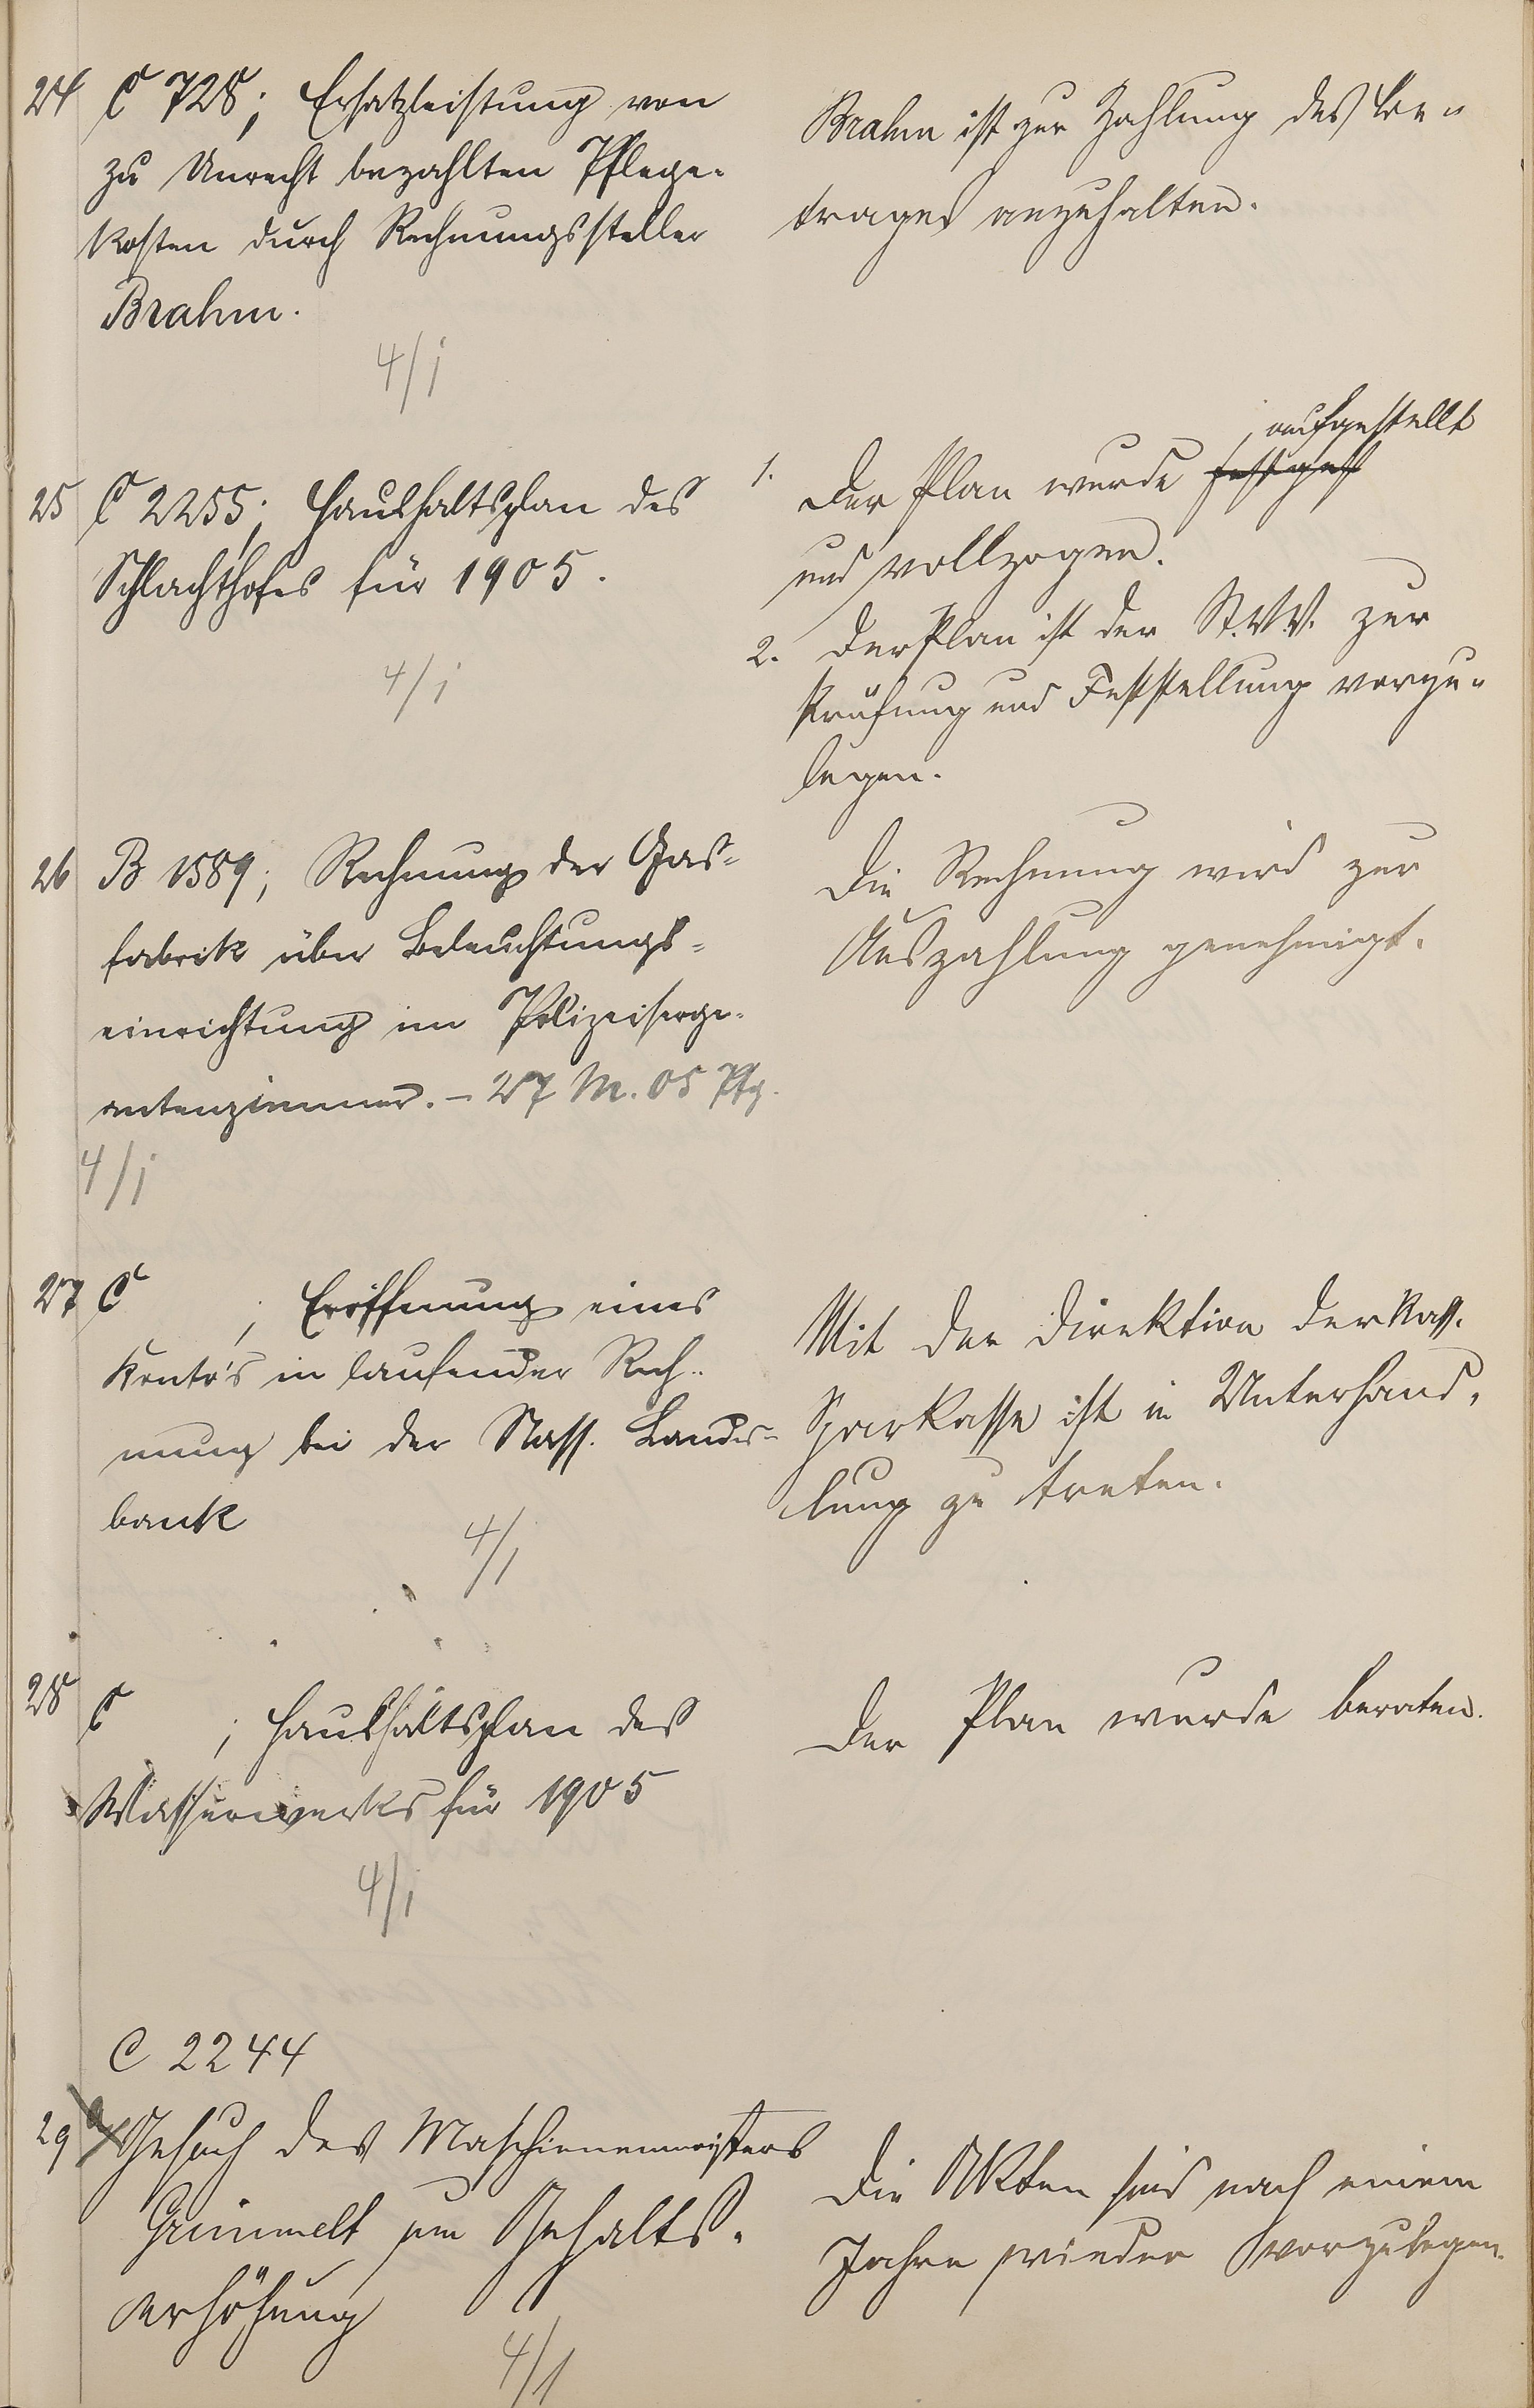 24 C 728; Ersatzleistung von
zu Unrecht bezahlten Pflege-
kosten durch Rechnungssteller
Brahm.
4/1
Brahm ist zur Zahlung des Be-
trages anzuhalten.
25 C 2255; Haushaltsplan des
Schlachthofes für 1905.
4/1
aufgestellt
1. Der Plan wurde festgest
und vollzogen.
2. Der Plan ist der St.V.V. zur
Prüfung und Feststellung vorzu-
legen.
26 B 1589; Rechnung der Gas-
fabrik über Beleuchtungs-
einrichtung im Polizeiserge-
antenzimmer. – 27 M. 05 Pfg.
4/1
Die Rechnung wird zur
Auszahlung genehmigt.
27 C ; Eröffnung eines
Konto's in laufender Rech-
nung bei der Nass. Landes-
bank
4/1
Mit der Direktion der Nass.
Sparkasse ist in Unterhand-
lung zu treten.
28 C ; Haushaltsplan des
Wasserwerks für 1905
4/1
Der Plan wurde beraten.
C 2244
29 Gesuch des Maschinenmeisters
Grimmelt um Gehalts-
erhöhung
4/1
Die Akten sind nach einem
Jahre wieder vorzulegen.